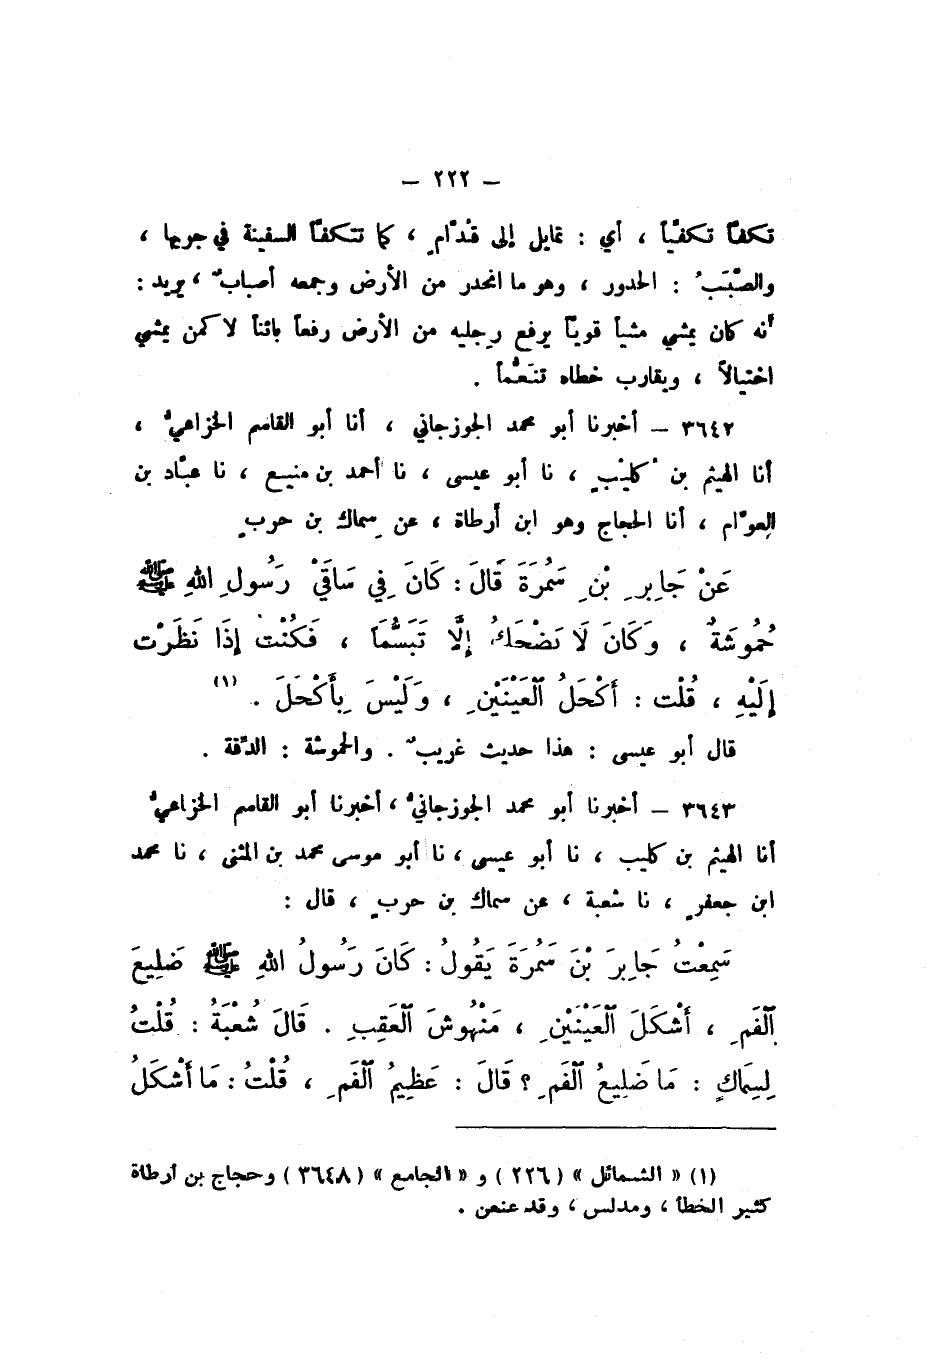 – ٢٢٢ –
تكفَّأ تكفيَّاً ، أي : تمايل إلى قُدَّامٍ ، كما تتكفأ السفينة في جريها ،
والصَّبَبُ : الحدور ، وهو ما انحدر من الأرض وجمعه أصبابٌ ، يريد :
أنه كان يمشي مشياً قوياً يرفع رجليه من الأرض رفعاً بائناً لا كمن يمشي
اختيالاً ، ويقارب خطاه تنَعُّماً .
٣٦٤٢ – أخبرنا أبو محمد الجوزجاني ، أنا أبو القاسم الخزاعيُّ ،
أنا الهيثم بن كُلَيْبٍ ، نا أبو عيسى ، نا أحمد بن منيع ، نا عبَّاد بن
العوَّام ، أنا الحجاج وهو ابن أرطاة ، عن سِماك بن حربٍ
عَنْ جَابِرِ بْنِ سَمُرَةَ قَالَ : كَانَ فِي سَاقَيْ رَسُولِ اللهِ ﷺ
حُمُوشَةٌ ، وَكَانَ لَا يَضْحَكُ إِلَّا تَبَسُّمَاً ، فَكُنْتُ إِذَا نَظَرْت
إِلَيْهِ ، قُلْت : أَكْحَلُ ٱلْعَيْنَيْنِ ، وَلَيْسَ بِأَكْحَلَ . (١)
قال أبو عيسى : هذا حديث غريبٌ . والحموشة : الدِّقة .
٣٦٤٣ – أخبرنا أبو محمد الجوزجانيُّ ، أخبرنا أبو القاسم الخزاعيُّ
أنا الهيثم بن كليب ، نا أبو عيسى ، نا أبو موسى محمد بن المثنى ، نا محمد
ابن جعفرٍ ، نا شعبة ، عن سماك بن حربٍ ، قال :
سَمِعْتُ جَابِرَ بْنَ سَمُرَةَ يَقُولُ : كَانَ رَسُولُ اللهِ ﷺ ضَلِيعَ
ٱلْفَمِ ، أَشْكَلَ ٱلْعَيْنَيْنِ ، مَنْهُوشَ ٱلْعَقِبِ . قَالَ شُعْبَةُ : قُلْتُ
لِسِمَاكٍ : مَا ضَلِيعُ ٱلْفَمِ ؟ قَالَ : عَظِيمُ ٱلْفَمِ ، قُلْتُ : مَا أَشْكَلُ
(١) « الشمائل » (٢٢٦) و « الجامع » (٣٦٤٨) وحجاج بن أرطاة
كثير الخطأ ، ومدلس ، وقد عنعن .